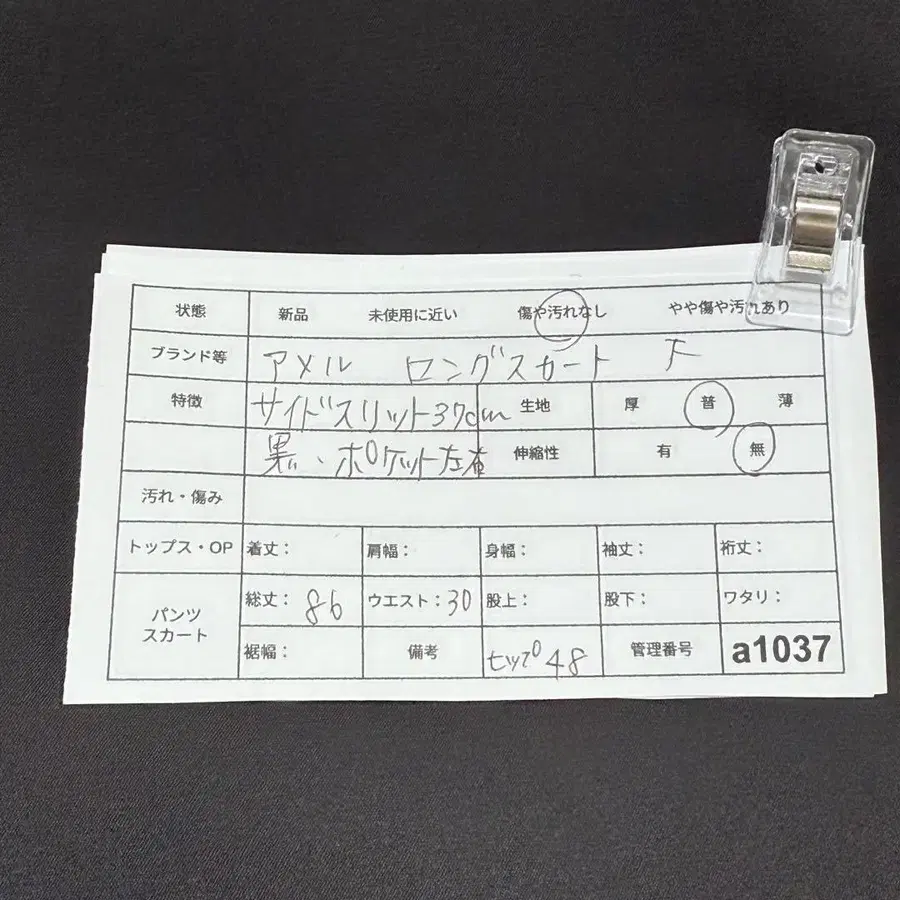 状態 新品 未使用に近い 傷や汚れなし やや傷や汚れあり
ブランド等 アメル ロングスカート
特徴 サイドスリット37cm 生地 厚 普 薄
黒、ポケット左右 伸縮性 有 無
汚れ・傷み
トップス・OP 着丈： 肩幅： 身幅： 袖丈： 裄丈：
パンツ スカート 総丈：86 ウエスト：30 股上： 股下： ワタリ：
裾幅： 備考 ヒップ48 管理番号 a1037